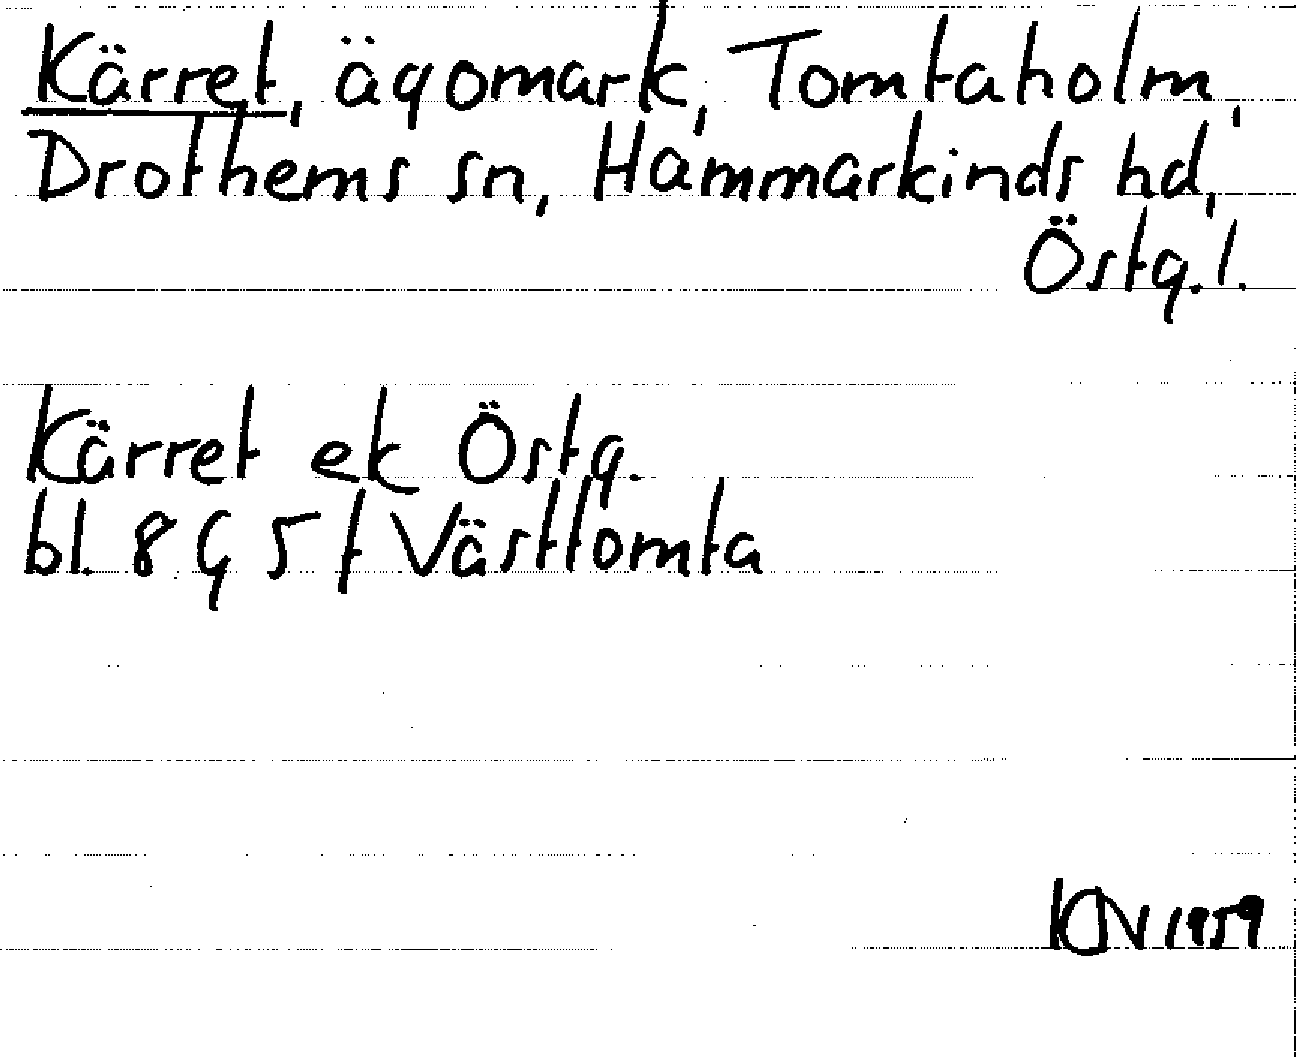 Kärret, ägomark, Tomtaholm,
Drothems sn, Hammarkinds hd,
Östg.l.
Kärret ek Östg.
bl. 8 G 5 f Västtomta
KN 1959